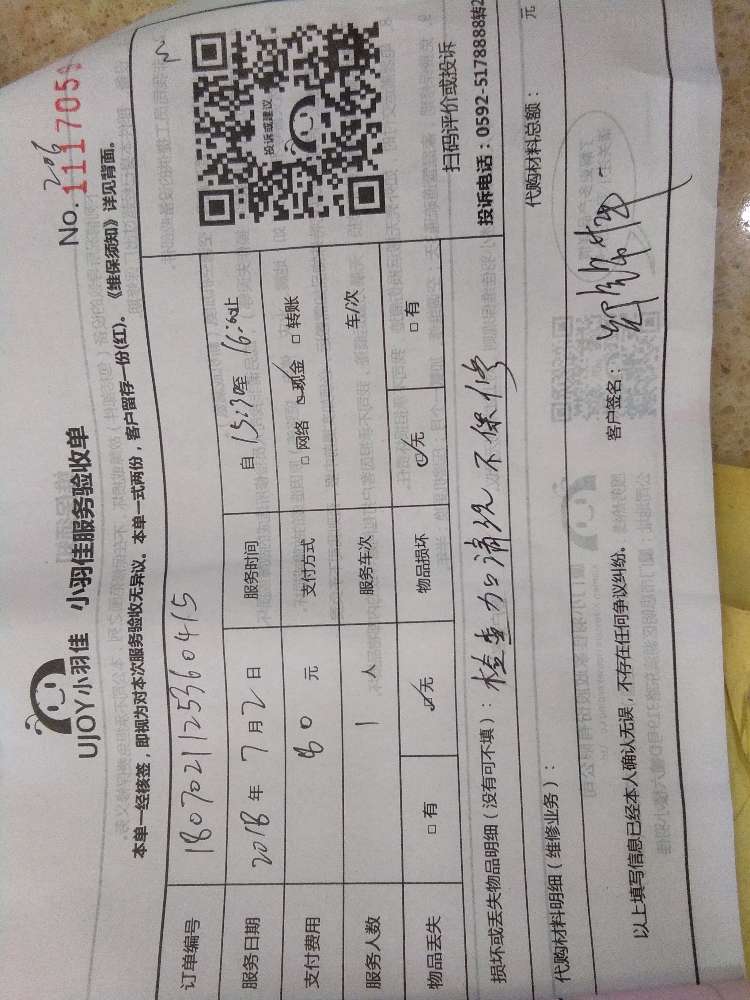 UJOY小羽佳 小羽佳服务验收单
206
No. 1117059
本单一经核签，即视为对本次服务验收无异议。本单一式两份，客户留存一份(红)。《维保须知》详见背面。
订单编号 1807021125360415
服务日期 2018 年 7 月 2 日 服务时间 自 15:30 至 16:00 止
支付费用 80 元 支付方式 □ 网络 ☑ 现金 □ 转账
服务人数 1 人 服务车次 车/次
物品丢失 □ 有 ☑ 无 物品损坏 ☑ 无 □ 有
投诉或建议
扫码评价或投诉
投诉电话：0592-5178888转2
损坏或丢失物品明细（没有可不填）：检查加清洗不保修
代购材料明细（维修业务）： 代购材料总额： 元
以上填写信息已经本人确认无误，不存在任何争议纠纷。 客户签名：